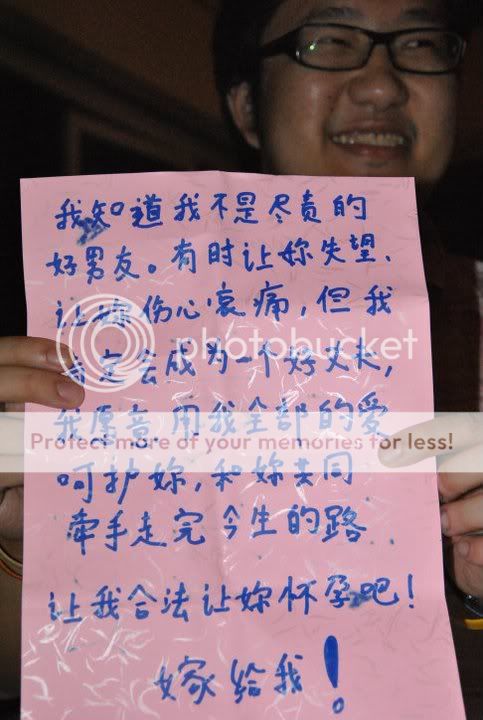 我知道我不是尽责的
好男友。有时让妳失望、
让妳伤心哀痛，但我
一定会成为一个好丈夫，
我愿意用我全部的爱
呵护妳，和妳共同
牵手走完今生的路
让我合法让妳怀孕吧！
嫁给我！
photobucket
Protect more of your memories for less!